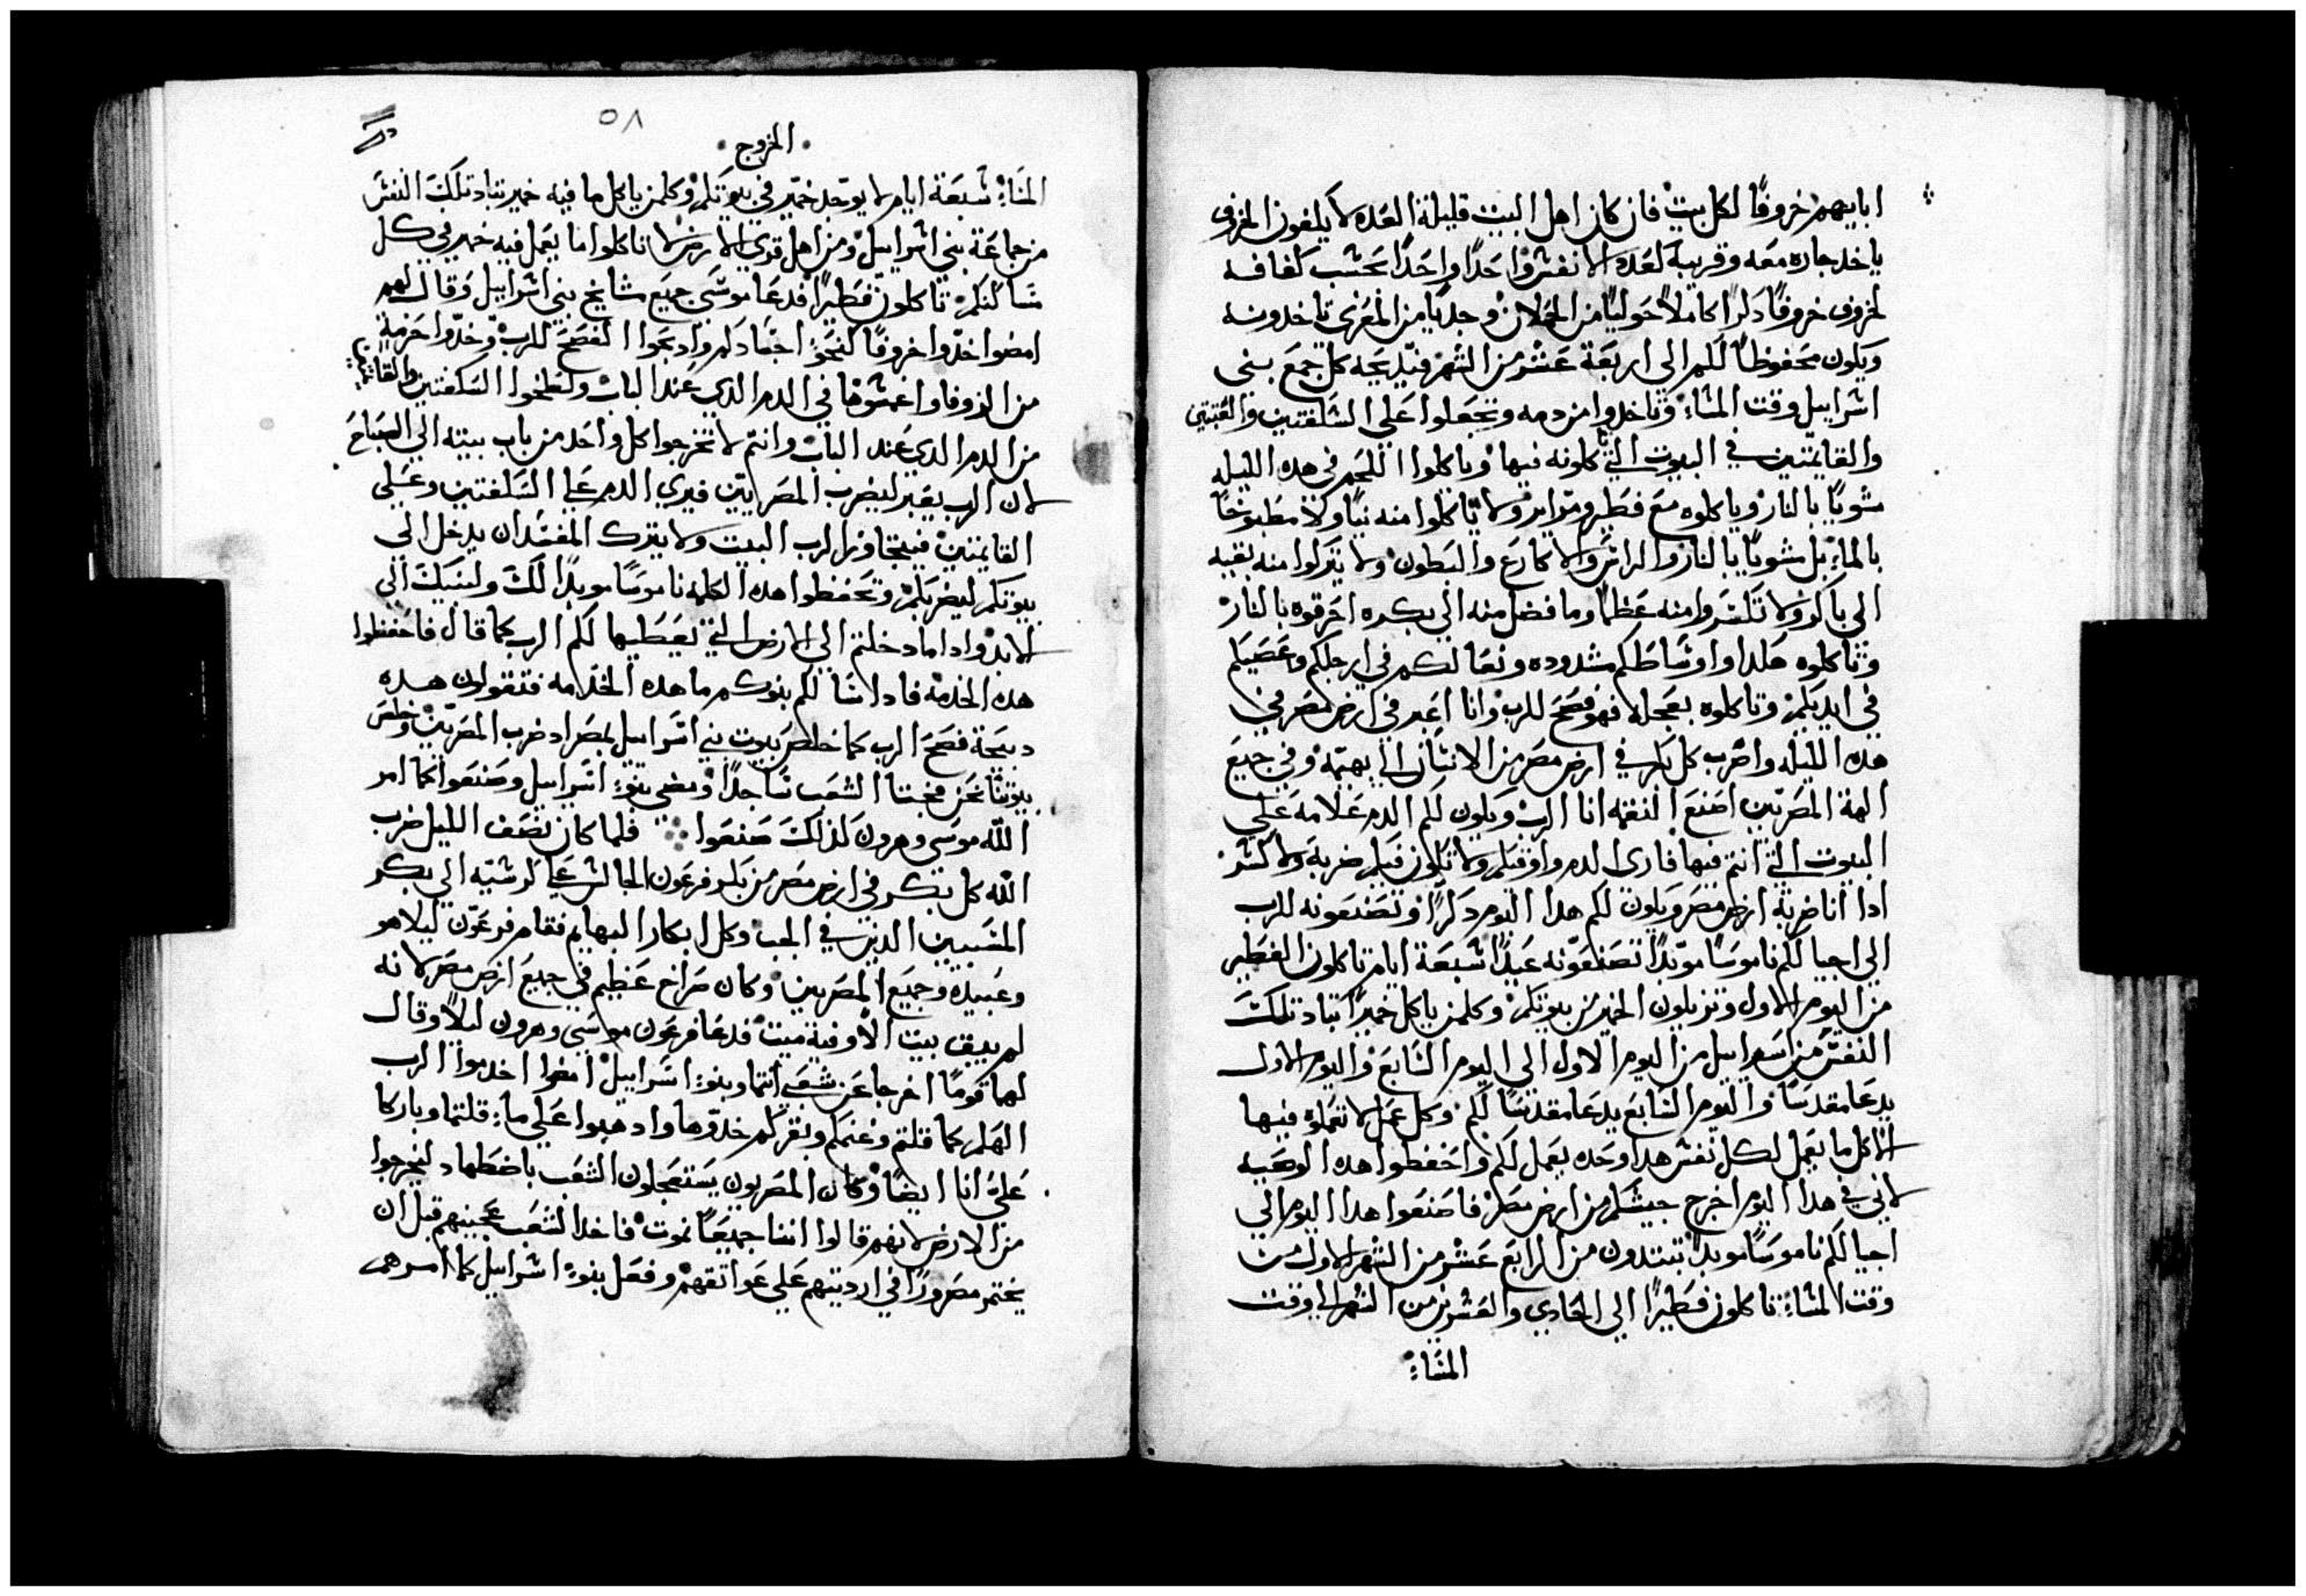 ابايهم خروفًا لكل بيت فان كان اهل البيت قليلة العده لا يكفون الخروف
ياخد جاره معه وقريبه لعدد الانفس واحدًا واحدًا بحسب كفافه
لخروف خروفًا دكرًا كاملًا حوليًا من الحملان وجديًا من المعزى تاخدونه
ويكون محفوظًا لكم الى اربعة عشر من الشهر فيدبحه كل جمع بني
اسراييل وقت المساء وتاخدوا من دمه وتجعلوا على السكفتين والعتبتين
والقايمتين في البيوت التي تاكلونه فيها وياكلوا اللحم في هده الليله
مشويًا بالنار وياكلوه مع فطير ومراير ولا تاكلوا منه نيًا ولا مطبوخًا
بالماء بل مشويًا بالنار والراس والاكارع والبطون ولا تتركوا منه بقيه
الى باكر ولا تكسروا منه عظمًا وما فضل منه الى بكره احرقوه بالنار
وتاكلوه هكدا واوساطكم مشدوده ونعالكم في ارجلكم وعصيكم
في ايديكم وتاكلوه بعجله فهو فصح للرب وانا اعبر في ارض مصر في
هده الليله واضرب كل بكر في ارض مصر من الانسان الى بهيمه وفي جميع
الهة المصريين اصنع النقمه انا الرب ويكون لكم الدم علامه على
البيوت التي انتم فيها فارى الدم واوقيكم ولا تكون فيكم ضربة ولا كسر
ادا انا ضربة ارض مصر ويكون لكم هدا اليوم دكرًا وتصنعونه للرب
الى اجيالكم ناموسًا موبدًا تصنعونه عيدًا سبعة ايام تاكلون الفطير
من اليوم الاول وتزيلون الخمير من بيوتكم وكلمن ياكل خميرًا تباد تلك
النفس من اسراييل من اليوم الاول الى اليوم السابع واليوم الاول
يدعا مقدسًا واليوم السابع يدعا مقدسًا لكم وكل عمل لا تعملوه فيها
الا كل ما يعمل لكل نفس هدا وحده يعمل لكم واحفظوا هده الوصيه
لاني في هدا اليوم اخرج جيشكم من ارض مصر فاصنعوا هدا اليوم الى
اجيالكم ناموسًا موبدًا تبتدون من الرابع عشر من الشهر الاول من
وقت المساء تاكلون فطيرًا الى الحادي والعشرين من الشهر الى وقت
المساء
٥٨
الخروج
المساء سبعة ايام لا يوجد خمير في بيوتكم وكلمن ياكل ما فيه خمير تباد تلك النفس
من جماعة بني اسراييل ومن اهل قوى الارض لا تاكلوا ما يعمل فيه خمير في كل
مساكنكم تاكلون فطيرًا فدعا موسى جميع مشايخ بني اسراييل وقال لهم
امضوا خدوا خروفًا لنحو اجنادكم وادبحوا الفصح للرب وخدوا حزمة
من الزوفا واغمسوها في الدم الدي عند الباب ولطخوا السكفتين والقايمتين
من الدم الدي عند الباب وانتم لا تخرجوا كل واحد من باب بيته الى الصباح
لان الرب يعبر ليضرب المصريين فيرى الدم على السكفتين وعلى
القايمتين فيتجاوز الرب البيت ولا يترك المفسد ان يدخل الى
بيوتكم ليضربكم وتحفظوا هده الكلمه ناموسًا موبدًا لك ولبنيك الى
الابد وادا ما دخلتم الى الارض التي يعطيها لكم الرب كما قال فاحفظوا
هده الخدمة فادا سالكم بنوكم ما هده الخدمه فتقولون هده
دبيحة فصح الرب كما خلص بيوت بني اسراييل بمصر اد ضرب المصريين وخلص
بيوتنا نحن فجثا الشعب ساجدًا ومضى بنو اسراييل وصنعوا كما امر
الله موسى وهرون كدلك صنعوا فلما كان نصف الليل ضرب
الله كل بكر في ارض مصر من بكر فرعون الجالس على كرسيه الى بكر
المسبيين الدين في الجب وكل ابكار البهايم فقام فرعون ليلا هو
وعبيده وجميع المصريين وكان صراخ عظيم في جميع ارض مصر لانه
لم يبق بيت الا وفية ميت فدعا فرعون موسى وهرون ليلًا وقال
لهما قوما اخرجا عن شعبي انتما وبنو اسراييل امضوا اخدموا الرب
الهكم كما قلتم وغنمكم وبقركم خدوها وادهبوا على ما قلتما وباركا
علي انا ايضًا وكان المصريون يستعجلون الشعب باضطهاد ليخرجوا
من الارض لانهم قالوا اننا جميعًا نموت فاخد الشعب عجينهم قبل ان
يختمر مصرورًا في ارديتهم على عواتقهم وفعل بنو اسراييل كما امرهم